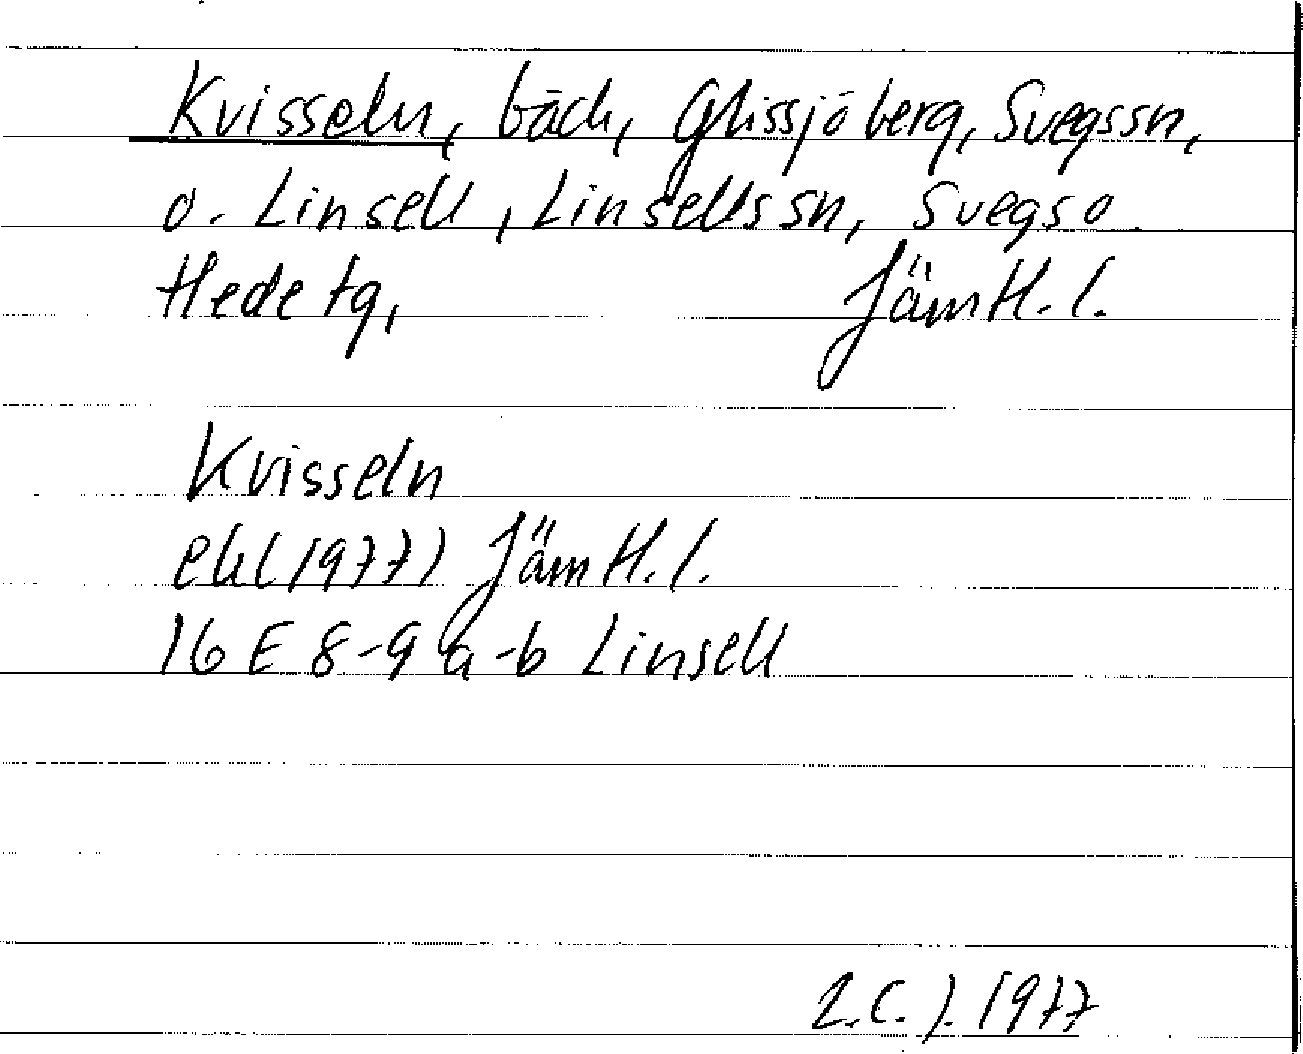 Kvisseln, bäck, Glissjöberg, Svegssn,
o. Linsell, Linsellssn, Svegs o
Hede tg, JämtH. l.
Kvisseln
ek (1977) JämtH. l.
16 E 8-9 a-b Linsell
L.C.J. 1977